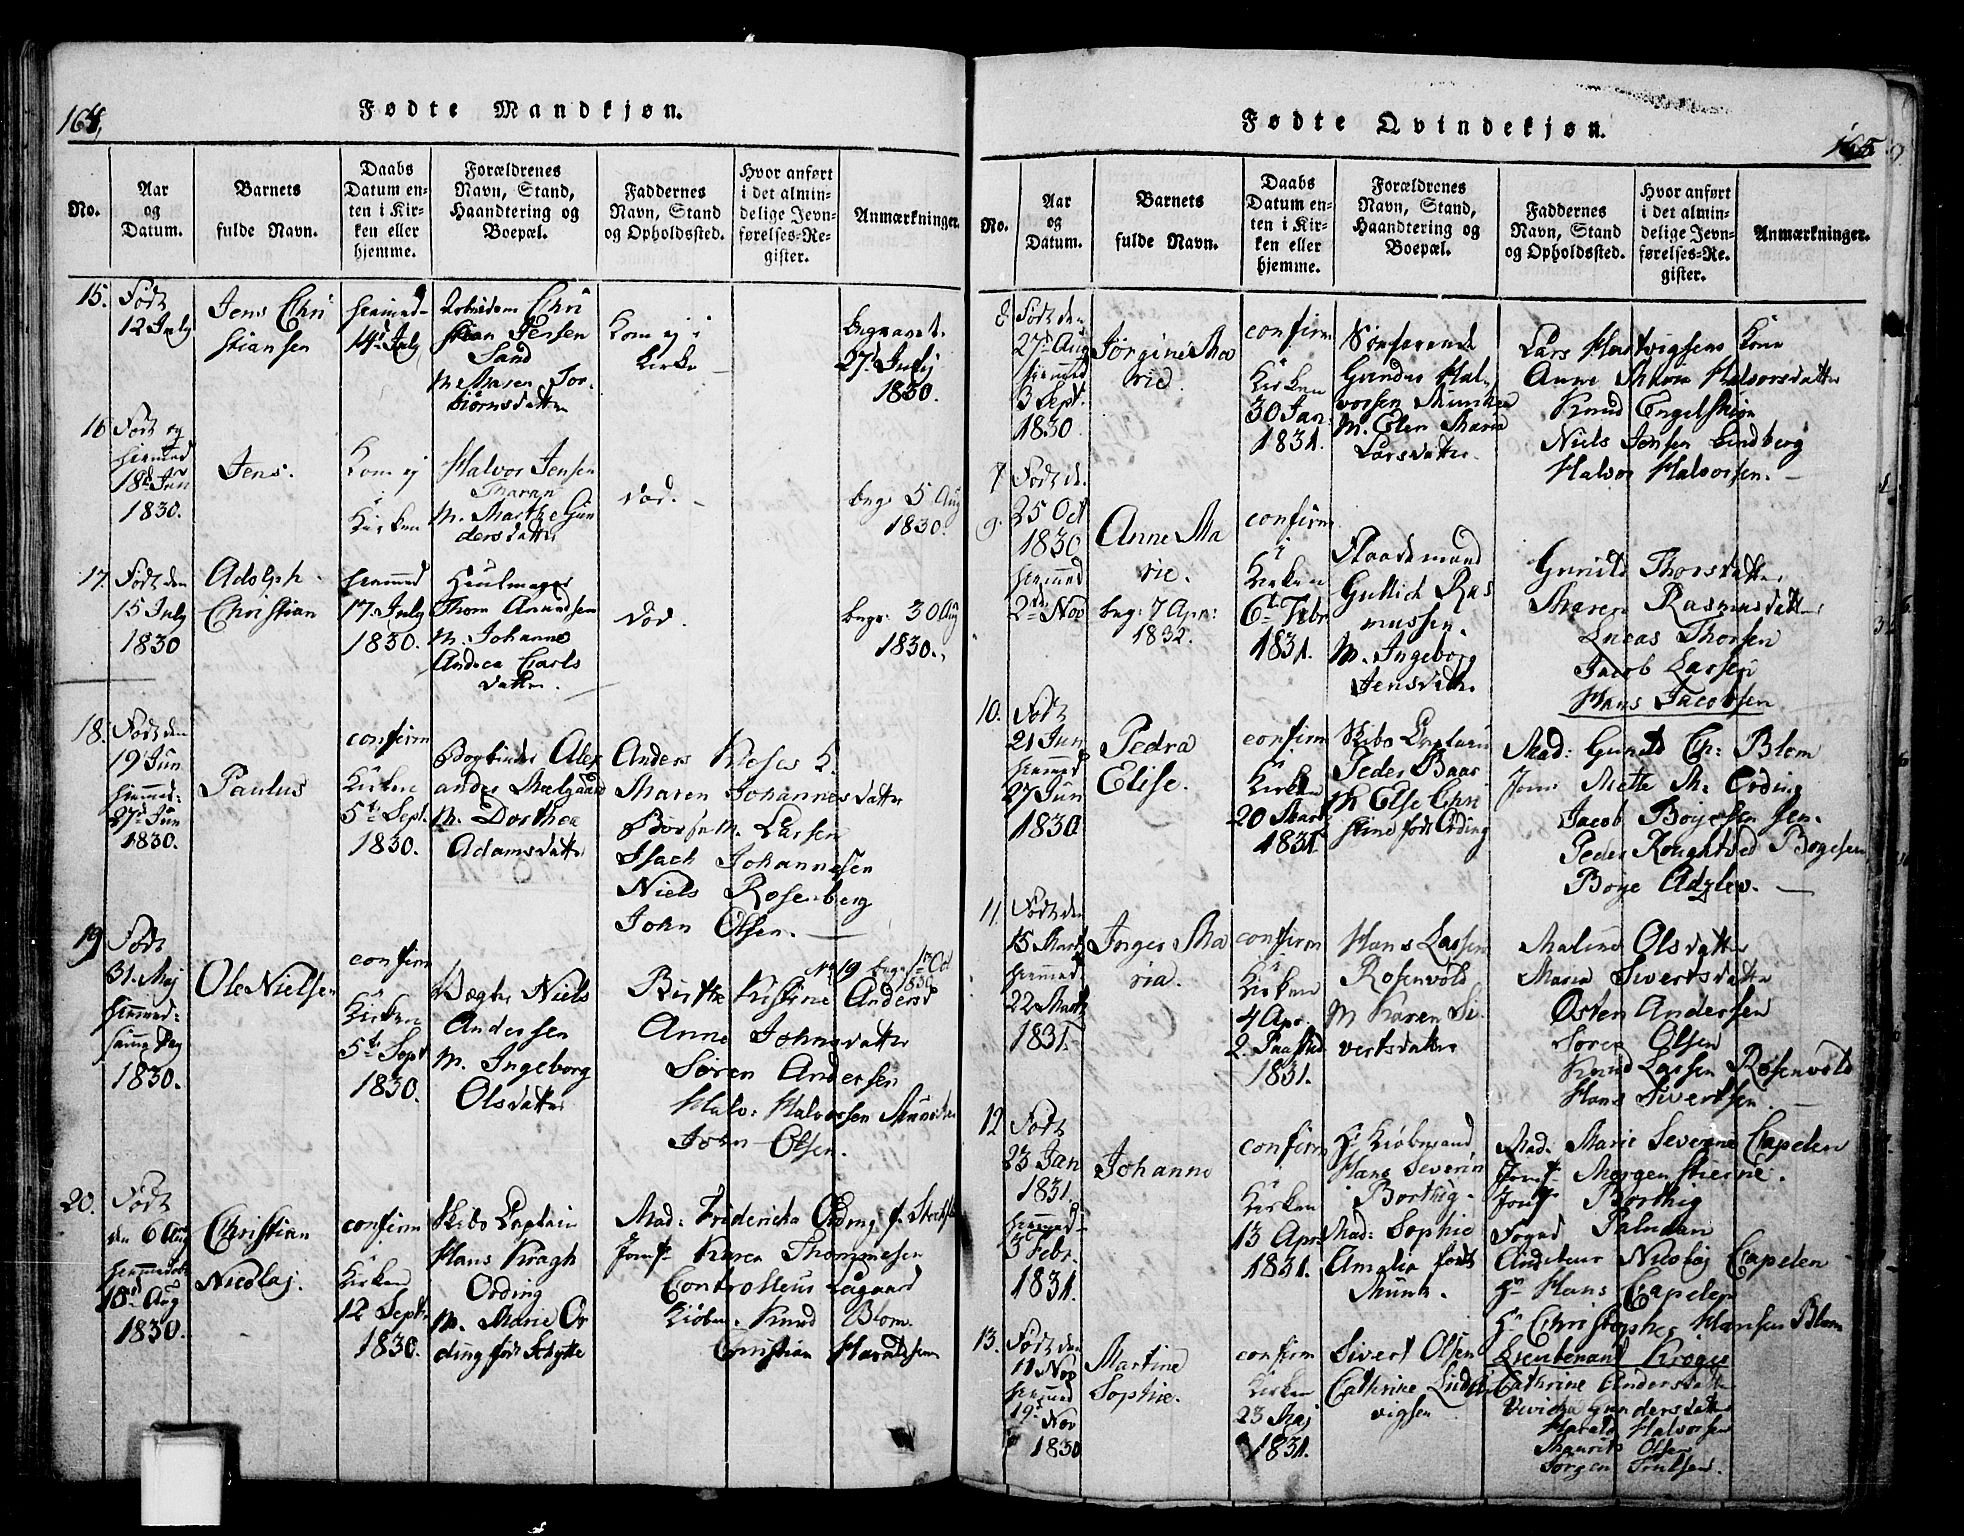 164,
Fødte Mandkjøn.
No.
Aar
og
Datum.
Barnets
fulde Navn.
Daabs
Datum en-
ten i Kir-
ken eller
hjemme.
Forældrenes
Navn, Stand,
Haandtering og
Boepæl.
Faddernes
Navn, Stand
og Opholdssted.
Hvor anført
i det almin-
delige Jevn-
førelses-Re-
gister.
Anmærkninger.
15.
Født
12 July
Jens Chri
stiansen
hiemmed
14d July
Chri
stian Jersen
Sand
M. Maren Tor-
biörnsdatter
Kom ej i
Kirke
begravet.
27d July
1830.
16
Født og
hiemmed
18d Jun
1830.
Jens.
Kom ej
i
Kirken
Halvor Jensen
M. Marthe Gun
dersdatter
död.
begr. 5 Aug
1830.
17.
Født den
15 July
1830
Adolph
Christian
hiemmed
17. July
1830.
Hiulmager
Thom Amundsen
M. Johanne
Andrea Carls
datter.
död.
begr. 30 Aug
1830.
18.
Født den
19 Jun
hiemmed:
27d Jun
1830.
Paulus
confirm
i
Kirken
5te Sept.
1830.
Bogbinder Alex
ander Mælgaard
M. Dorthea
Adamsdatter
Anders
Maren Johannesdatter
M. Larsen
Isach Johannesen
Niels Rosenberg
John Olsen.
19
Født
31. Maj
hiemmed-
samme Dag
1830.
Ole Nielsen
confirm
i
Kirken
5te Sept
1830.
Vægter Niels
Andersen
M. Ingeborg
Olsdatter
No 19 begr. 1 Oct
1830
Birthe Kistine Andersd
Anne Johnsdatter
Søren Andersen
Halv: Halvorsen Munken
John Olsen.
20.
Født
den 6 Aug
hiemmed
18de Aug
1830.
Christian
Nicolaj.
confirm
i
Kirken
12 Septr.
1830.
Skibs Captain
Hans Kragh
Ording
M. Marie Or
ding født Schytte
Mad: Fridericha Ording f.
Jomf. Karen Thommesen
Controlleur Lagaard
Kiöbm. Knud Blom.
Christian Haraldsen
Fødte Qvindekjøn.
165
No.
Aar
og
Datum.
Barnets
fulde Navn.
Daabs
Datum en-
ten i Kir-
ken eller
hjemme.
Forældrenes
Navn, Stand,
Haandtering og
Boepæl.
Faddernes
Navn, Stand
og Opholdssted.
Hvor anført
i det almin-
delige Jevn-
førelses-Re-
gister.
Anmærkninger.
8
Født den
27d Aug
hiemmed
3 Sept.
1830
Jørgine Ma
rie.
confirm
i
Kirken
30 Jan.
1831.
Søefarende
Gunder Hal-
vorsen Munken
M. Elen Maria
Larsdatter.
Lars Hartvigsens Kone
Anne Maria Halvorsdatter
Knud Engelskiön
Niels Jensen Lindberg
Halvor Halvorsen.
9.
Født d.
25 Oct
1830
hiemmed
2den Nov
Anne Ma
rie.
begr: 7 Apr:
1832.
confirm
i
Kirken
6te Febr
1831.
Flaadsmand
Gullich Ras
mussen.
M. Ingeborg
Jensdatter
Gunild Thorsdatter
Maren Rasmusdatter
Lucas Thorsen
Jacob Larsen
Hans Jacobsen
10.
Født
21 Jun
hiemmed
27 Jun
1830
Pedra
Elise.
confirm
i
Kirken
20 Mart
1831.
Skibs Captain
Peder Baar
M. Else Chri
stine født Ording
Mad: Gunild Ch: Blom
Jomf. Mette M. Ording
Jacob Boyesen sen.
Peder Roughtved Boyesen
Boye
11.
Født den
15 Mart
hiemmed
22 Martz
1831.
Inger Ma
ria.
confirm
i
Kirken
4 Apr
2. Paaskd.
1831.
Hans Lassen
Rosenvold
M Karen Si-
vertsdatter
Malene Olsdatter
Maria Sivertsdatter
Østen Andersen
Søren Olsen
Knud Lassen Rosenvold
Hans Sivertsen.
12
Født
23 Jan
1831.
hiemmed-
3 Febr.
1831.
Johanne
confirm
i
Kirken
13 Apr:
1831.
Hr Kiöbmand
Hans Severin
Borthig-
Mad: Sophie
Amalia født
Munk.
Mad: Marie Severine Capelen
Jomf. Morgenstierne.
Jomf. Borthig
Foged Paludan
Auditeur Nicolaj Capelen
Hr Hans Capelen
Hr Christopher Hansen Blom
Lieutenant Krogh
13.
Født den
11 Nov
hiemmed
19d
Nov
1830
Martine
Sophie.
confirm
i
Kirken
23 Maj
1831.
Sivert Olsen
Cathrine Lud
vigsen
Cathrine Andersdatter
Vivicha Gundersdatter
Harald Halvorsen
Maurits Olsen
Jørgen Trulsen.